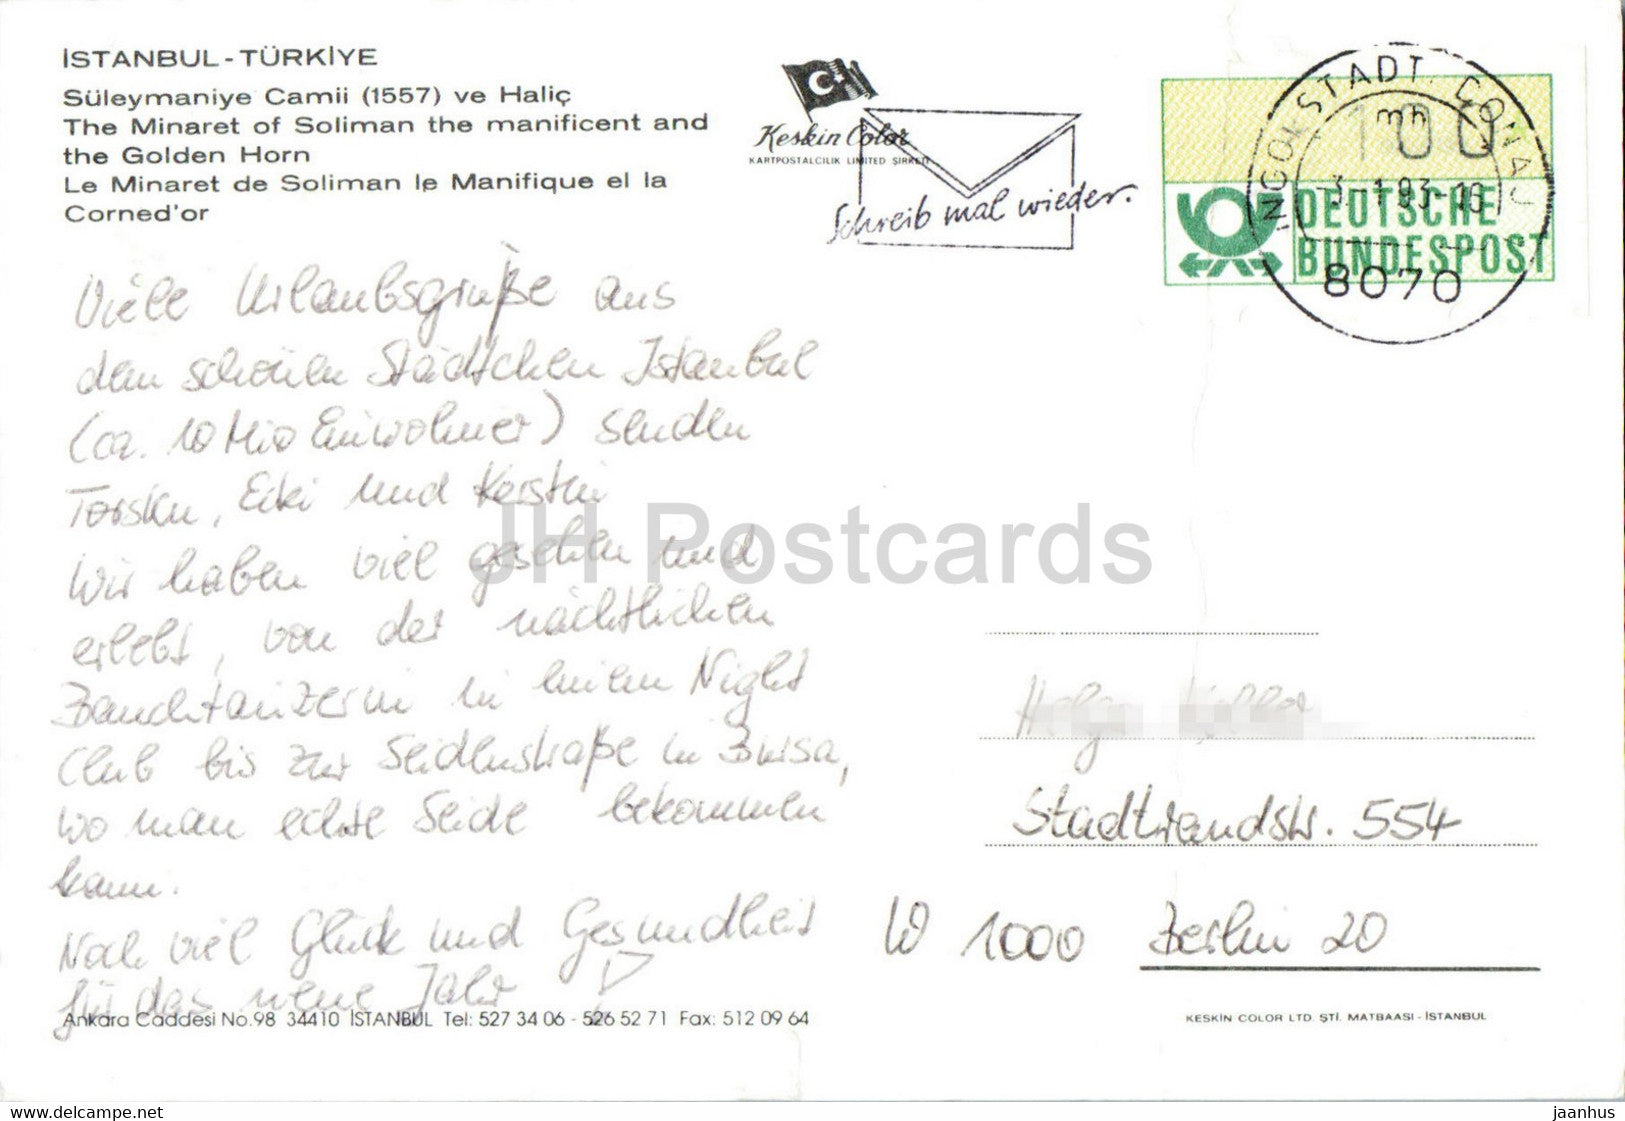 İSTANBUL - TÜRKİYE
Süleymaniye Camii (1557) ve Haliç
The Minaret of Soliman the manificent and
the Golden Horn
Le Minaret de Soliman le Manifique el la
Corned'or
Keskin Color
KARTPOSTALCILIK LIMITED ŞIRKETI
Schreib mal wieder.
INGOLSTADT, DONAU
mh
100
3.-1.93-16
DEUTSCHE
BUNDESPOST
8070
Viele Urlaubsgrüße aus
dem schönen Städtchen Istanbul
(ca. 10 Mio Einwohner) senden
Torsten, Ecki und Kerstin
Wir haben viel gesehen und
erlebt, von der nächtlichen
Bauchtänzerin in einem Night
Club bis zur Seidenstraße in Bursa,
wo man echte Seide bekommen
kann.
Noch viel Glück und Gesundheit
für das neue Jahr
JH Postcards
Holger
Stadtrandstr. 554
W 1000 Berlin 20
Ankara Caddesi No.98 34410 İSTANBUL Tel: 527 34 06 - 526 52 71 Fax: 512 09 64
KESKİN COLOR LTD. ŞTİ. MATBAASI - İSTANBUL
www.delcampe.net
jaanhus